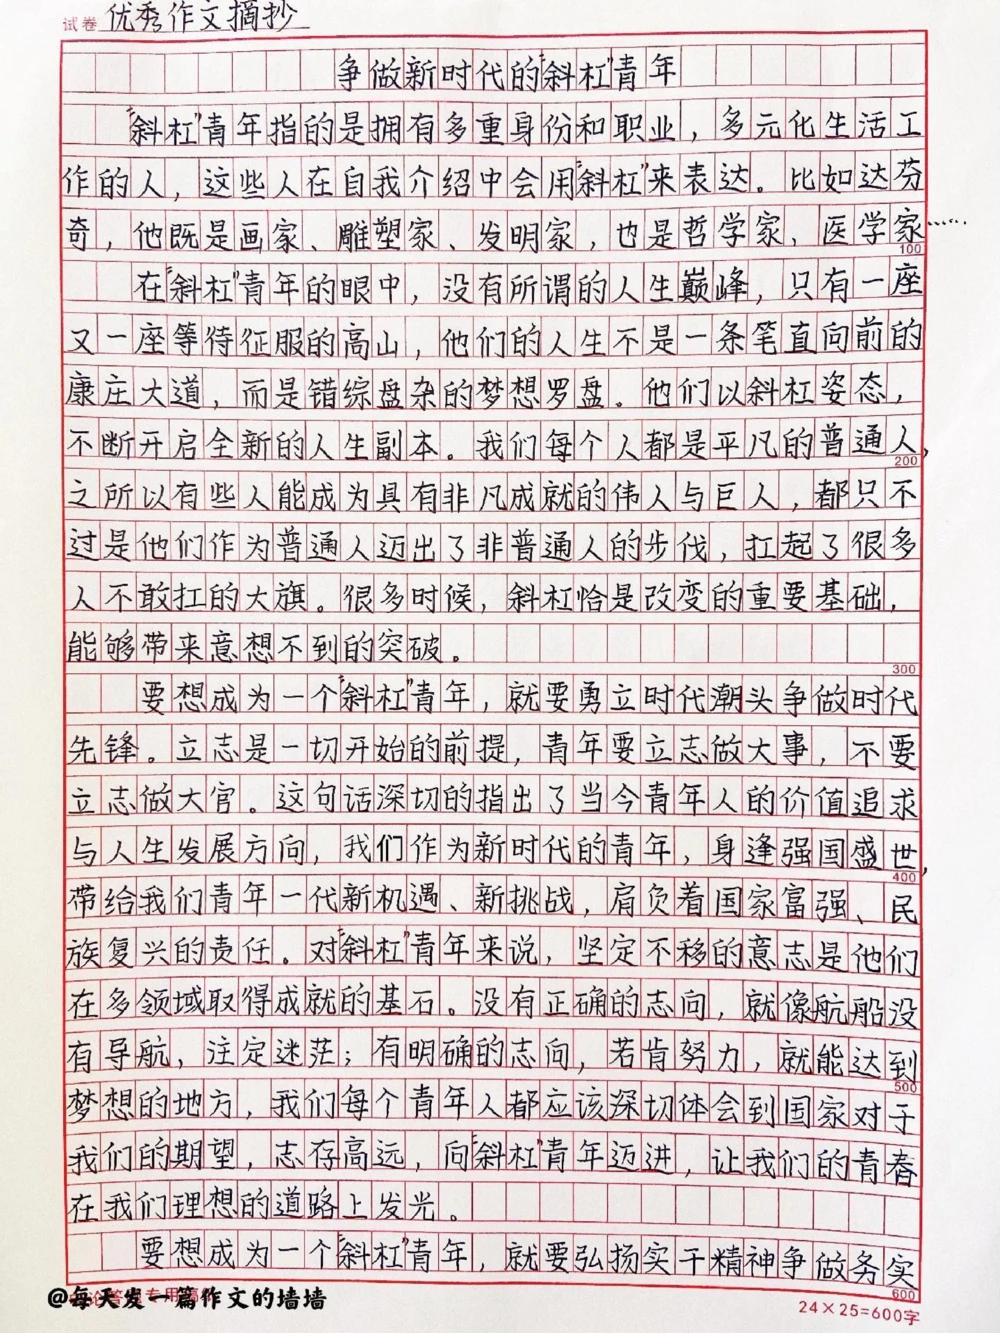 试卷 优秀作文摘抄
争做新时代的“斜杠”青年
“斜杠”青年指的是拥有多重身份和职业，多元化生活工
作的人，这些人在自我介绍中会用“斜杠”来表达。比如达芬
奇，他既是画家、雕塑家、发明家，也是哲学家、医学家……
100
在“斜杠”青年的眼中，没有所谓的人生巅峰，只有一座
又一座等待征服的高山，他们的人生不是一条笔直向前的
康庄大道，而是错综盘杂的梦想罗盘。他们以斜杠姿态，
不断开启全新的人生副本。我们每个人都是平凡的普通人，
200
之所以有些人能成为具有非凡成就的伟人与巨人，都只不
过是他们作为普通人迈出了非普通人的步伐，扛起了很多
人不敢扛的大旗。很多时候，斜杠恰是改变的重要基础，
能够带来意想不到的突破。
300
要想成为一个“斜杠”青年，就要勇立时代潮头争做时代
先锋。立志是一切开始的前提，青年要立志做大事，不要
立志做大官。这句话深切的指出了当今青年人的价值追求
与人生发展方向，我们作为新时代的青年，身逢强国盛世，
400
带给我们青年一代新机遇、新挑战，肩负着国家富强、民
族复兴的责任。对“斜杠”青年来说，坚定不移的意志是他们
在多领域取得成就的基石。没有正确的志向，就像航船没
有导航，注定迷茫；有明确的志向，若肯努力，就能达到
500
梦想的地方，我们每个青年人都应该深切体会到国家对于
我们的期望，志存高远，向“斜杠”青年迈进，让我们的青春
在我们理想的道路上发光。
要想成为一个“斜杠”青年，就要弘扬实干精神争做务实
600
@每天发一篇作文的墙墙
24×25=600字